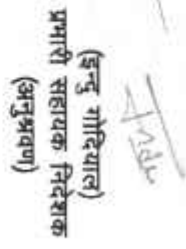 (इन्दु गोदियाल)
प्रभारी सहायक निदेशक
(अनुश्रवण)